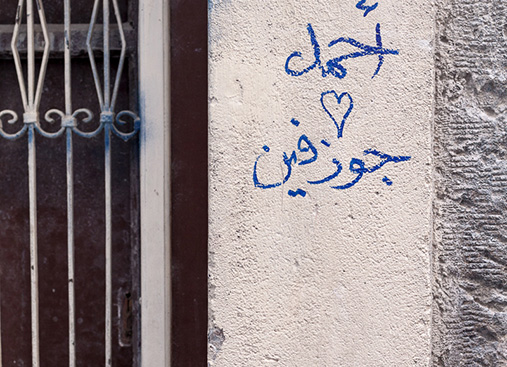 أحمد
♡
جوزفين